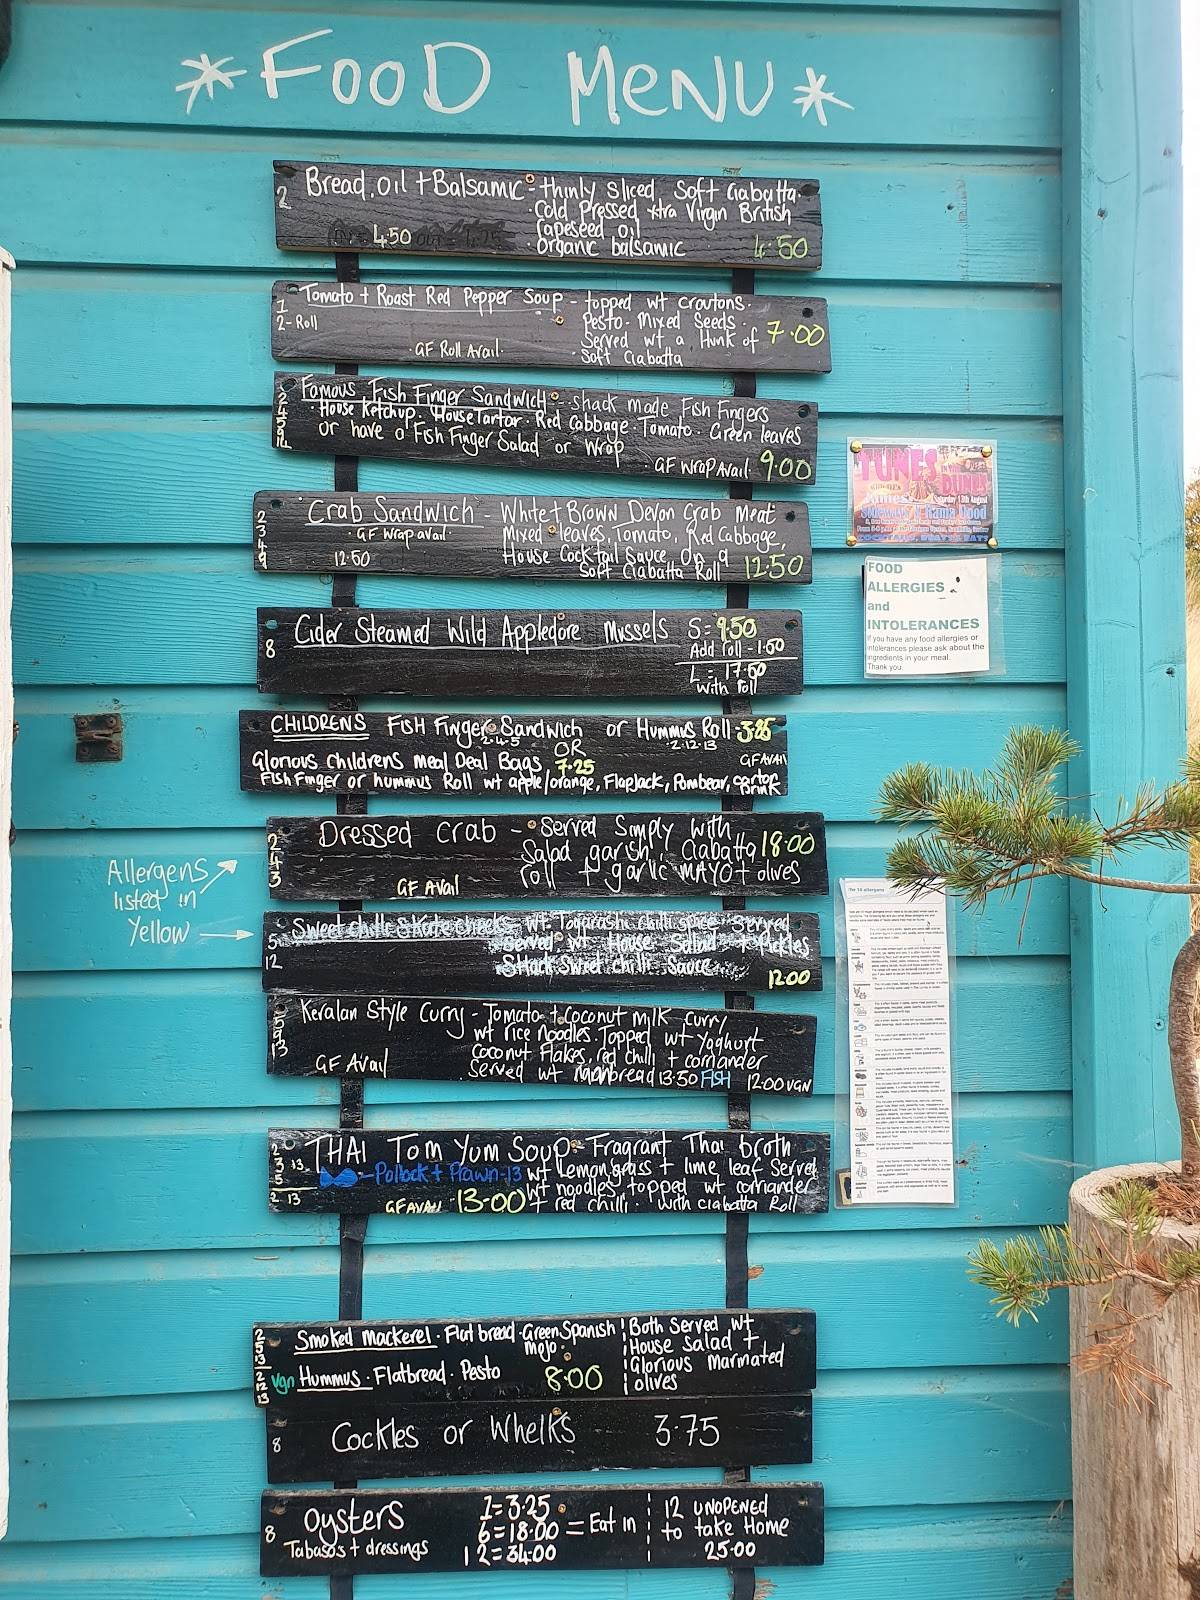 *FOOD MENU*
2 Bread, oil + Balsamic - thinly sliced Soft Ciabatta.
Cold Pressed xtra Virgin British
rapeseed oil
4.50 organic balsamic 4.50
1 Tomato + Roast Red Pepper Soup - topped wt croutons.
2- Roll Pesto. Mixed Seeds.
Served wt a Hunk of 7.00
GF Roll Avail. Soft Ciabatta
2 Famous Fish Finger Sandwich - shack made Fish Fingers
4 House Ketchup. House Tartar. Red Cabbage. Tomato. Green leaves
5 or have a Fish Finger Salad or Wrap
14 GF Wrap Avail 9.00
2 Crab Sandwich - White + Brown Devon Crab Meat
3 GF Wrap avail Mixed leaves, Tomato, Red Cabbage,
4 12.50 House Cocktail Sauce On a
9 Soft Ciabatta Roll 12.50
8 Cider Steamed Wild Appledore Mussels S= 9.50
Add roll - 1.50
L = 17.50
with roll
CHILDRENS Fish Finger Sandwich or Hummus Roll 3.25
2.4.5 2.12.13
OR
Glorious childrens Meal Deal Bags 7.25 GF AVAIL
Fish Finger or hummus Roll wt apple/orange, Flapjack, Pombear, carton
Drink
2 Dressed Crab - Served Simply with
4 Salad garish, Ciabatta 18.00
3 GF Avail roll + garlic MAYO + olives
Allergens
listed in
Yellow
Sweet chilli Skate cheeks wt Togarashi chilli spice Served
5 Served wt House Salad + Pickles
12 Shack Sweet chilli Sauce
12.00
5 Keralan Style Curry - Tomato + coconut milk curry
9 wt rice noodles. Topped wt Yoghurt
13 GF Avail coconut flakes, red chilli + corriander
Served wt naanbread 13.50 FISH 12.00 VGN
2 THAI Tom Yum Soup - Fragrant Thai broth
3 13 Pollock + Prawn-13 wt lemongrass + lime leaf Served
5 wt noodles, topped wt corriander
2 13 GF AVAIL 13.00 + red chilli. with ciabatta Roll
2 Smoked Mackerel. Flat bread. Green Spanish Both Served wt
5 mojo. House Salad +
13 Glorious marinated
2 Vgn Hummus. Flatbread. Pesto 8.00 olives
12
13
8 Cockles or Whelks 3.75
8 Oysters 1= 3.25
6= 18.00 = Eat in
Tabasos + dressings 12= 34.00
12 UNOPENED
to take Home
25.00
TUNES
IN THE
DUNES
Saturday 13th August
FOOD
ALLERGIES
and
INTOLERANCES
If you have any food allergies or
intolerances please ask about the
ingredients in your meal.
Thank you.
the 14 allergens